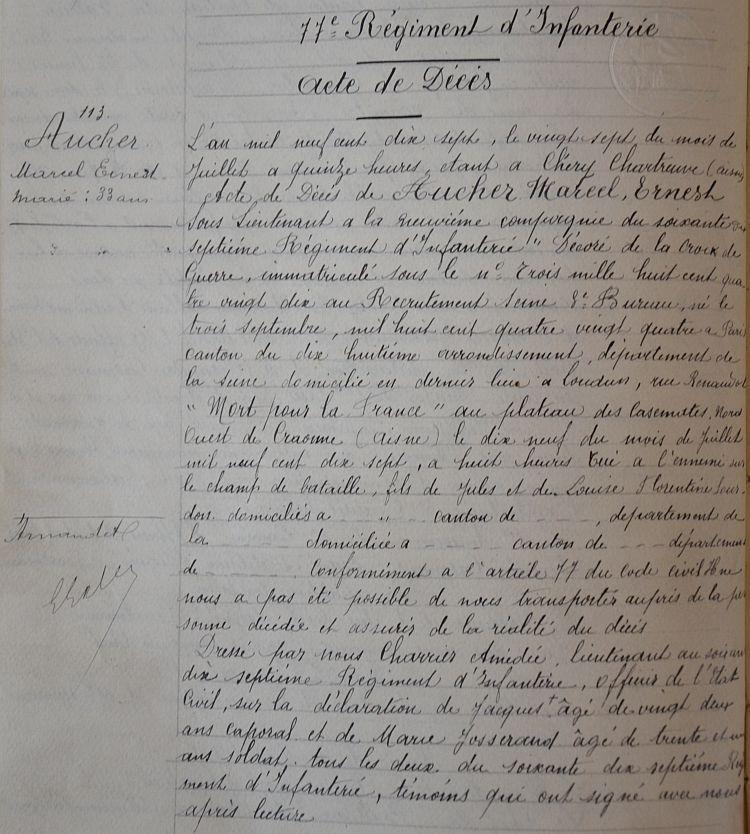 77e Régiment d'Infanterie
Acte de Décès
113.
Aucher
Marcel Ernest
marié : 33 ans
L'an mil neuf cent dix sept, le vingt sept du mois de
Juillet a quinze heures, etant a Chéry Chartreuve (aisne)
Acte de Décès de Aucher Marcel, Ernest
Sous Lieutenant a la neuvième compagnie du soixante dix
septième Régiment d'Infanterie " Décoré de la Croix de
Guerre, immatriculé sous le no Trois mille huit cent qua
tre vingt dix au Recrutement Seine Bureau, né le
trois septembre, mil huit cent quatre vingt quatre a Paris
canton du dix huitième arrondissement, département de
la Seine domicilié en dernier lieu a Loudun, rue Renaudot
" Mort pour la France " au plateau des Casemates, Nord
Ouest de Craonne (Aisne) le dix neuf du mois de Juillet
mil neuf cent dix sept, a huit heures tué a l'ennemi sur
le champ de bataille, fils de Jules et de Louise Florentine
domiciliés a " canton de , département de
la domiciliée a canton de département
de Conformément a l'article 77 du code civil il ne
nous a pas été possible de nous transporter aupres de la per
sonne décédée et assurer de la réalité du décès
Dressé par nous Charrier Amédée, lieutenant au soixante
dix septième Régiment d'Infanterie, officier de l'Etat
Civil, sur la déclaration de Jacques + âgé de vingt deux
ans caporal et de Marie Josserand âgé de trente et un
ans soldat, tous les deux du soixante dix septième Régi
ment d'Infanterie, témoins qui ont signé avec nous
après lecture